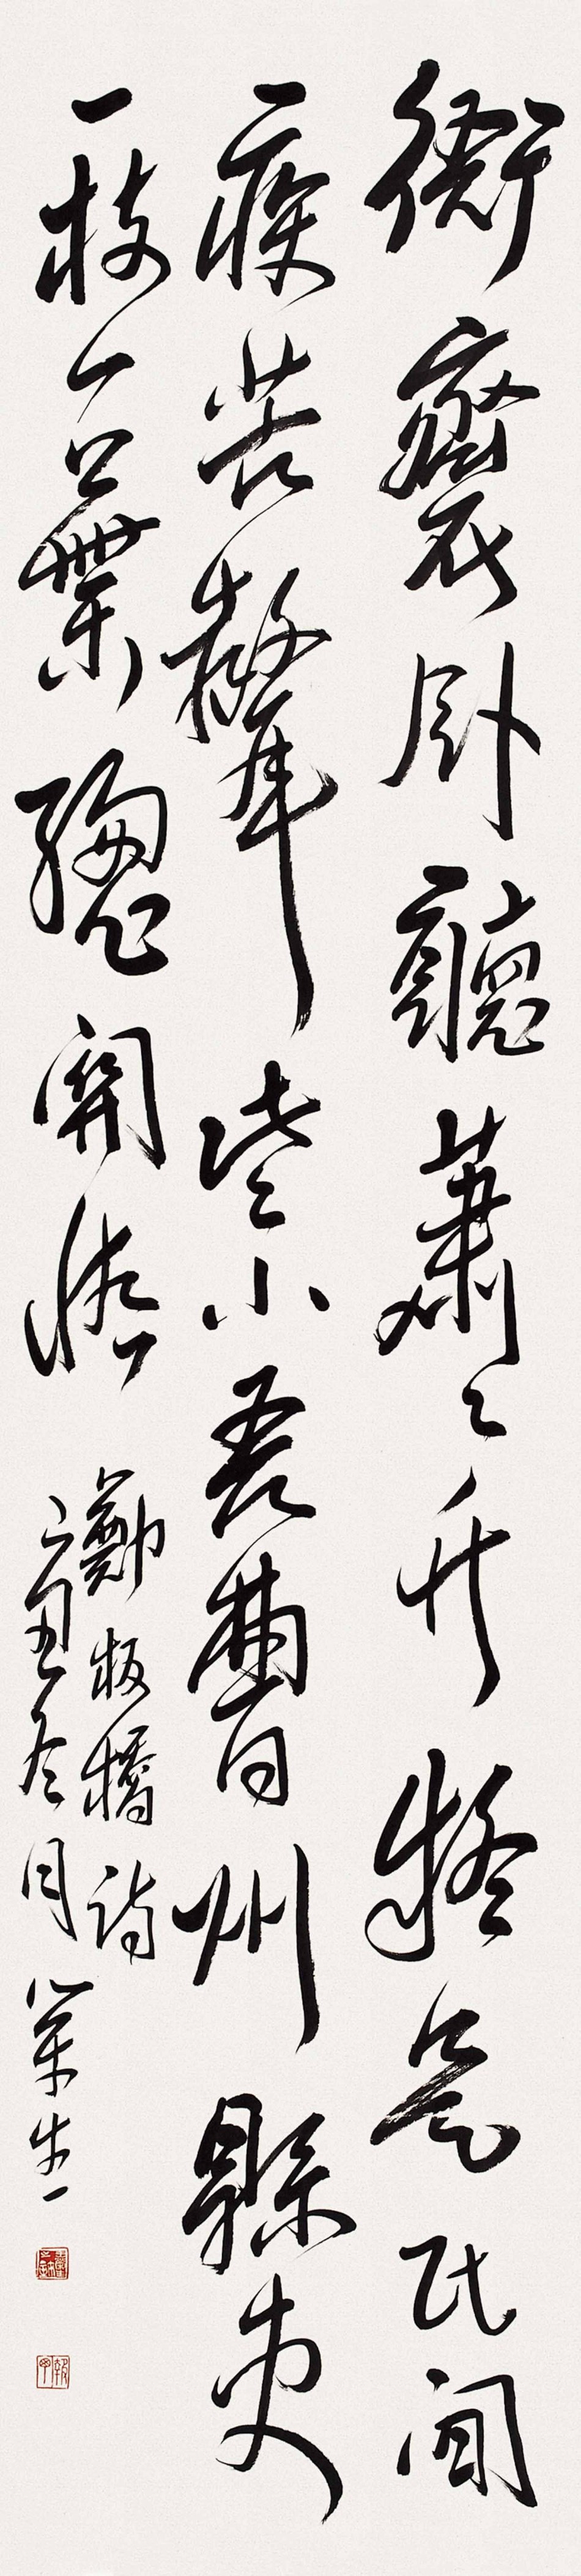 衙齋卧聽蕭々竹疑是民間
疾苦聲些小吾曹州縣吏
一枝一葉總關情
鄭板橋詩
丑冬月